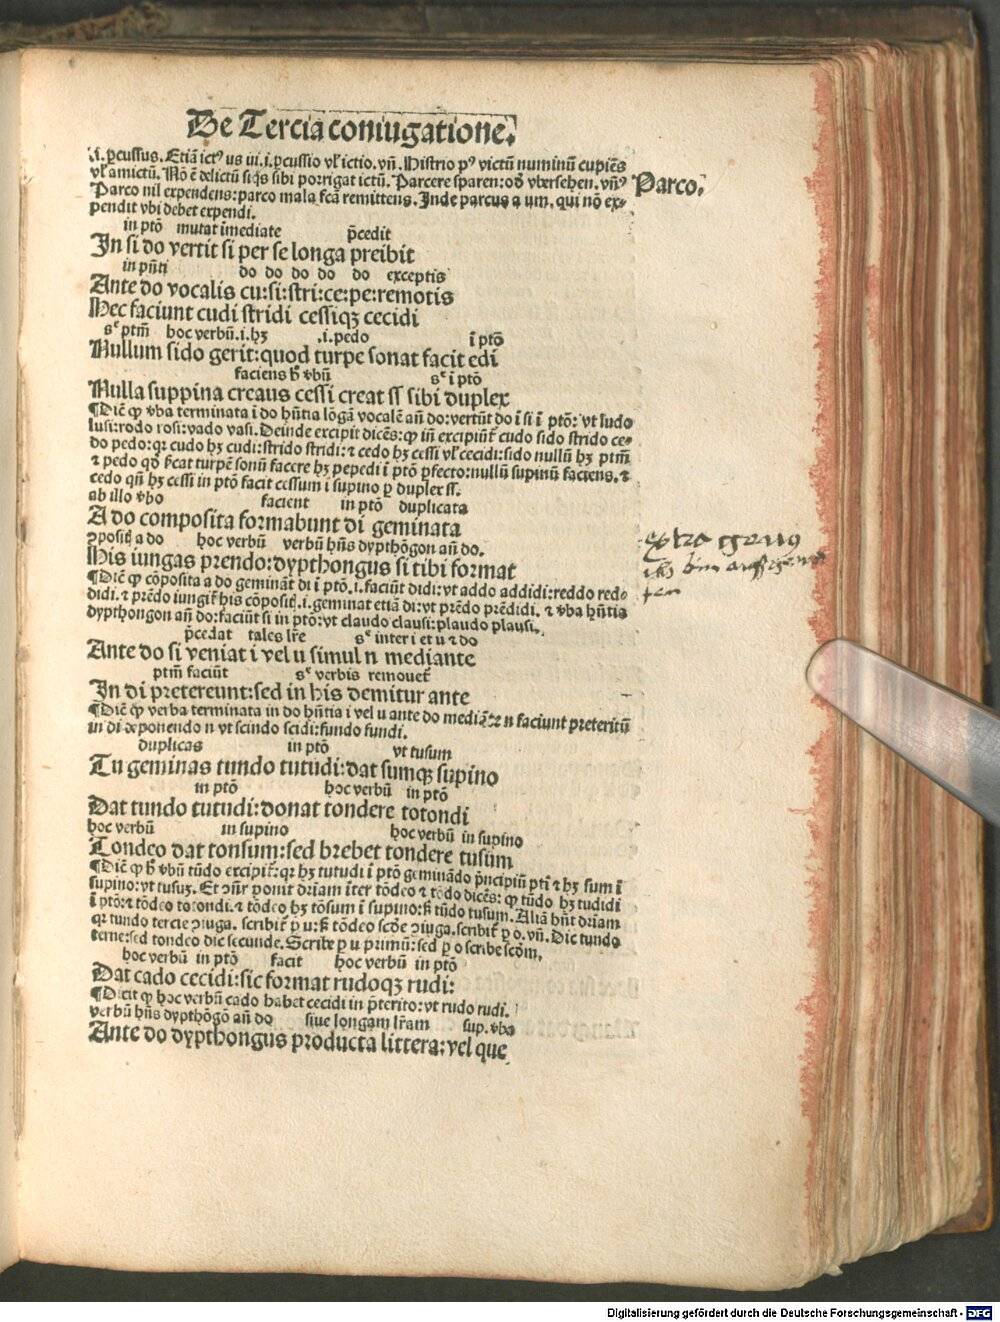 De Tercia coniugatione.
.i. ꝑcussus. Etiã ictꝰ us ui .i. ꝑcussio vl̓ ictio. vñ. Histrio pꝰ victũ numinũ cupiẽs
vl̓ amictũ. Nõ ẽ delictũ si q̃s sibi porrigat ictũ. Parcere sparen: oď vbersehen. vñꝰ
Parco.
Parco nil expendens: parco mala fcã remittens. Inde parcus a um. qui nõ ex⸗
pendit vbi debet expendi.
in ptõ mutat imediate p̃cedit
In si do vertit si per se longa preibit
in pñti do do do do do exceptis
Ante do vocalis cu: si: stri: ce: pe: remotis
Hec faciunt cudi stridi cessiqꝫ cecidi
sꝰ ptm̃ hoc verbũ .i. hꝫ .i. pedo ĩ ptõ
Nullum sido gerit: quod turpe sonat facit edi
faciens h̃ v̓bũ sꝰ ĩ ptõ
Nulla suppina creans cessi creat ss sibi duplex
¶Dic̃ ꝙ v̓ba terminata ĩ do hñtia lõgã vocalẽ añ do: vertũt do ĩ si ĩ ptõ: vt ludo
lusi: rodo rosi: vado vasi. Deinde excipit dicẽs: ꝙ iñ excipiũt̃ cudo sido strido ce⸗
do pedo: qꝛ cudo hꝫ cudi: strido stridi: ⁊ cedo hꝫ cessi vl̓ cecidi: sido nullũ hꝫ ptm̃
⁊ pedo qđ s̃cat turpẽ sonũ facere hꝫ pepedi ĩ ptõ ꝑfecto: nullũ supinũ faciens. ⁊
cedo qñ hꝫ cessi in ptõ facit cessum ĩ supino ꝑ duplex ss.
ab illo v̓bo facient in ptõ duplicata
A do composita formabunt di geminata
ꝯposit̃ a do hoc verbũ verbũ hñs dypthõgon añ do.
His iungas prendo: dypthongus si tibi format
¶Dic̃ ꝙ cõposita a do geminãt di ĩ ptõ .i. faciũt didi: vt addo addidi: reddo red⸗
didi. ⁊ prẽdo iungit̃ his cõposit̃ .i. geminat etiã di: vt prẽdo prẽdidi. ⁊ v̓ba hñtia
dypthongon añ do: faciũt si in ptõ: vt claudo clausi: plaudo plausi.
p̃cedat tales lr̃e sꝰ inter i et u ⁊ do
Ante do si veniat i vel u simul n mediante
ptm̃ faciũt sꝰ verbis remouet̃
In di pretereunt: sed in his demitur ante
¶Dic̃ ꝙ verba terminata in do hñtia i vel u ante do mediãte n faciunt preteritũ
in di deponendo n vt scindo scidi: fundo fundi.
duplicas in ptõ vt tusum
Tu geminas tundo tutudi: dat sumqꝫ supino
in ptõ hoc verbũ in ptõ
Dat tundo tutudi: donat tondere totondi
hoc verbũ in supino hoc verbũ in supino
Tondeo dat tonsum: sed brebet tondere tusum
¶Dic̃ ꝙ h̃ v̓bũ tũdo excipit̃: qꝛ hꝫ tutudi ĩ ptõ gemiñado p̃ncipiũ pti ⁊ hꝫ sum ĩ
supino: vt tusuꝫ. Et ꝯñr ponit dr̃iam ĩter tõdeo ⁊ tũdo dicẽs: ꝙ tũdo hꝫ tudidi
ĩ ptõ: ⁊ tõdeo totondi. ⁊ tõdeo hꝫ tõsum ĩ supino: s̃ tũdo tusum. Aliã hñt dr̃iam
qꝛ tundo tercie ꝯiuga. scribit̃ ꝑ u: s̃ tõdeo scõe ꝯiuga. scribit̃ ꝑ o. vñ. Dic tundo
terne: sed tondeo dic secunde. Scribe ꝑ u primũ: sed ꝑ o scribe scõm.
hoc verbũ in ptõ facit hoc verbũ in ptõ
Dat cado cecidi: sic format rudoqꝫ rudi:
¶Dicit ꝙ hoc verbũ cado habet cecidi in p̃terito: vt rudo rudi.
verbũ hñs dypthõgõ añ do siue longam lr̃am sup. v̓ba
Ante do dypthongus producta littera: vel que
extra genus
Digitalisierung gefördert durch die Deutsche Forschungsgemeinschaft - DFG